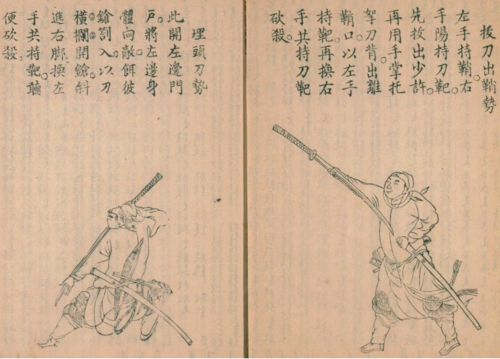 拔刀出鞘勢
左手持鞘。右
手陽持刀靶。
先拔出少許。
再用手掌托
挐刀背出離
鞘口。以左手
持靶。再換右
手共持刀靶。
砍殺。
埋頭刀勢
此開左邊門
戶。將左邊身
體向敵餌彼
鎗劄入。以刀
橫攔開鎗。斜
進右脚。換左
手共持靶。聽
便砍殺